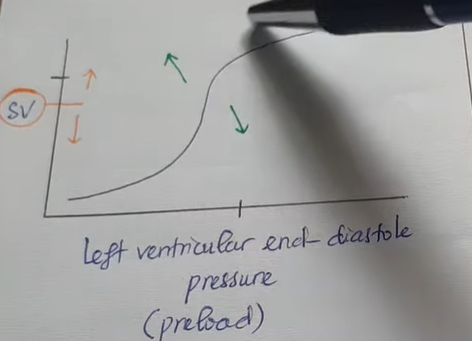 SV
Left ventricular end-diastole
pressure
(preload)